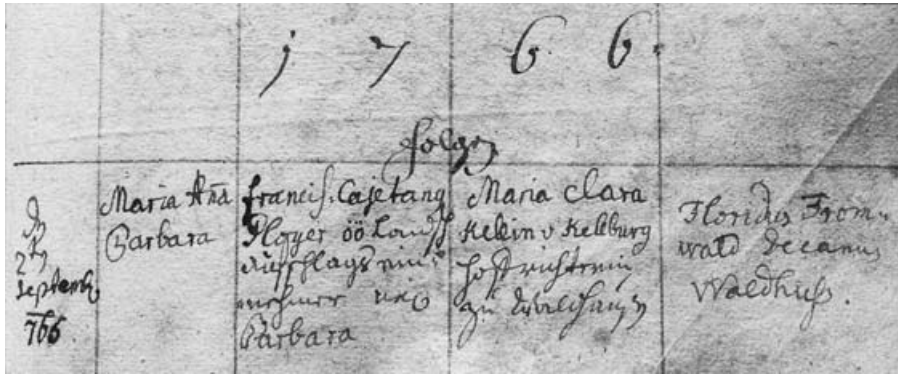 1 7 6 6.
folgen
Den
27
Septemb.
766
Maria Aña
Barbara
Francis. Cajetang
Ployer öö Landſ
Aufſchlags ein
nehmer
Barbara
Maria Clara
Kellin v Kellburg
hoffrichterin
zu Waldhausen
Floridg From
wald Decanus
Waldhuſs.